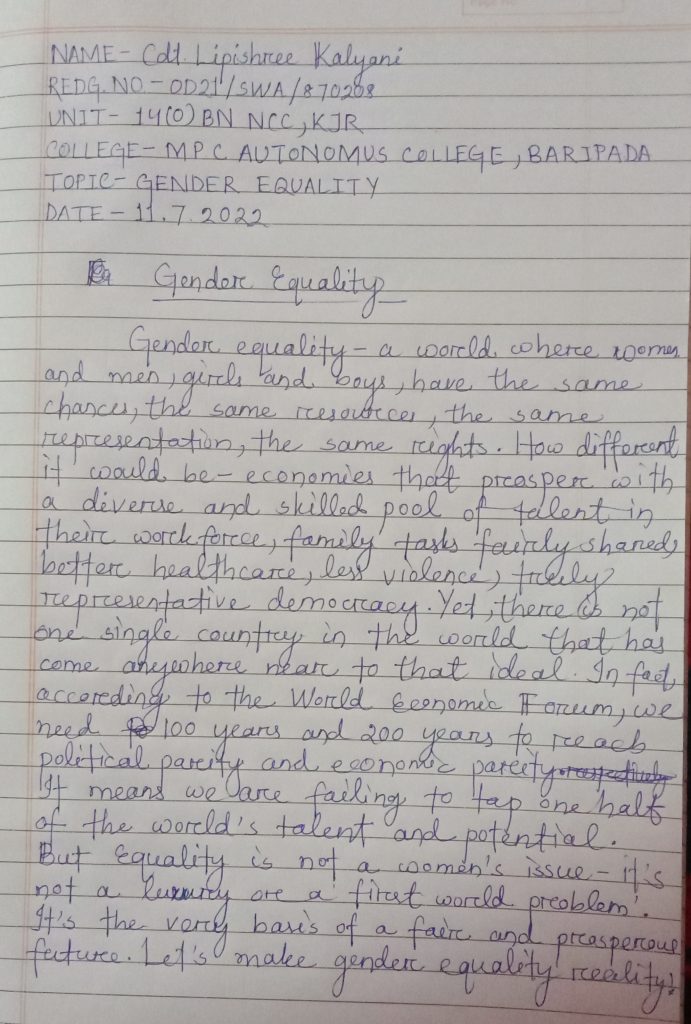 NAME - Cdt. Lipishree Kalyani
REDG. NO - OD21/SWA/870208
UNIT - 14(O) BN NCC, KJR
COLLEGE - M P C AUTONOMUS COLLEGE, BARIPADA
TOPIC - GENDER EQUALITY
DATE - 11.7.2022
Gender Equality
Gender equality - a world, where women
and men, girls and boys, have the same
chances, the same resources, the same
representation, the same rights. How different
it would be - economies that prosper with
a diverse and skilled pool of talent in
their work force, family tasks fairly shared,
better healthcare, less violence, truly
representative democracy. Yet, there is not
one single country in the world that has
come anywhere near to that ideal. In fact,
according to the World Economic Forum, we
need 100 years and 200 years to reach
political parity and economic parity respectively
It means we are failing to tap one half
of the world's talent and potential.
But Equality is not a women's issue - it's
not a luxury or a 'first world problem'.
It's the very basis of a fair and prosperous
future. Let's make gender equality reality!